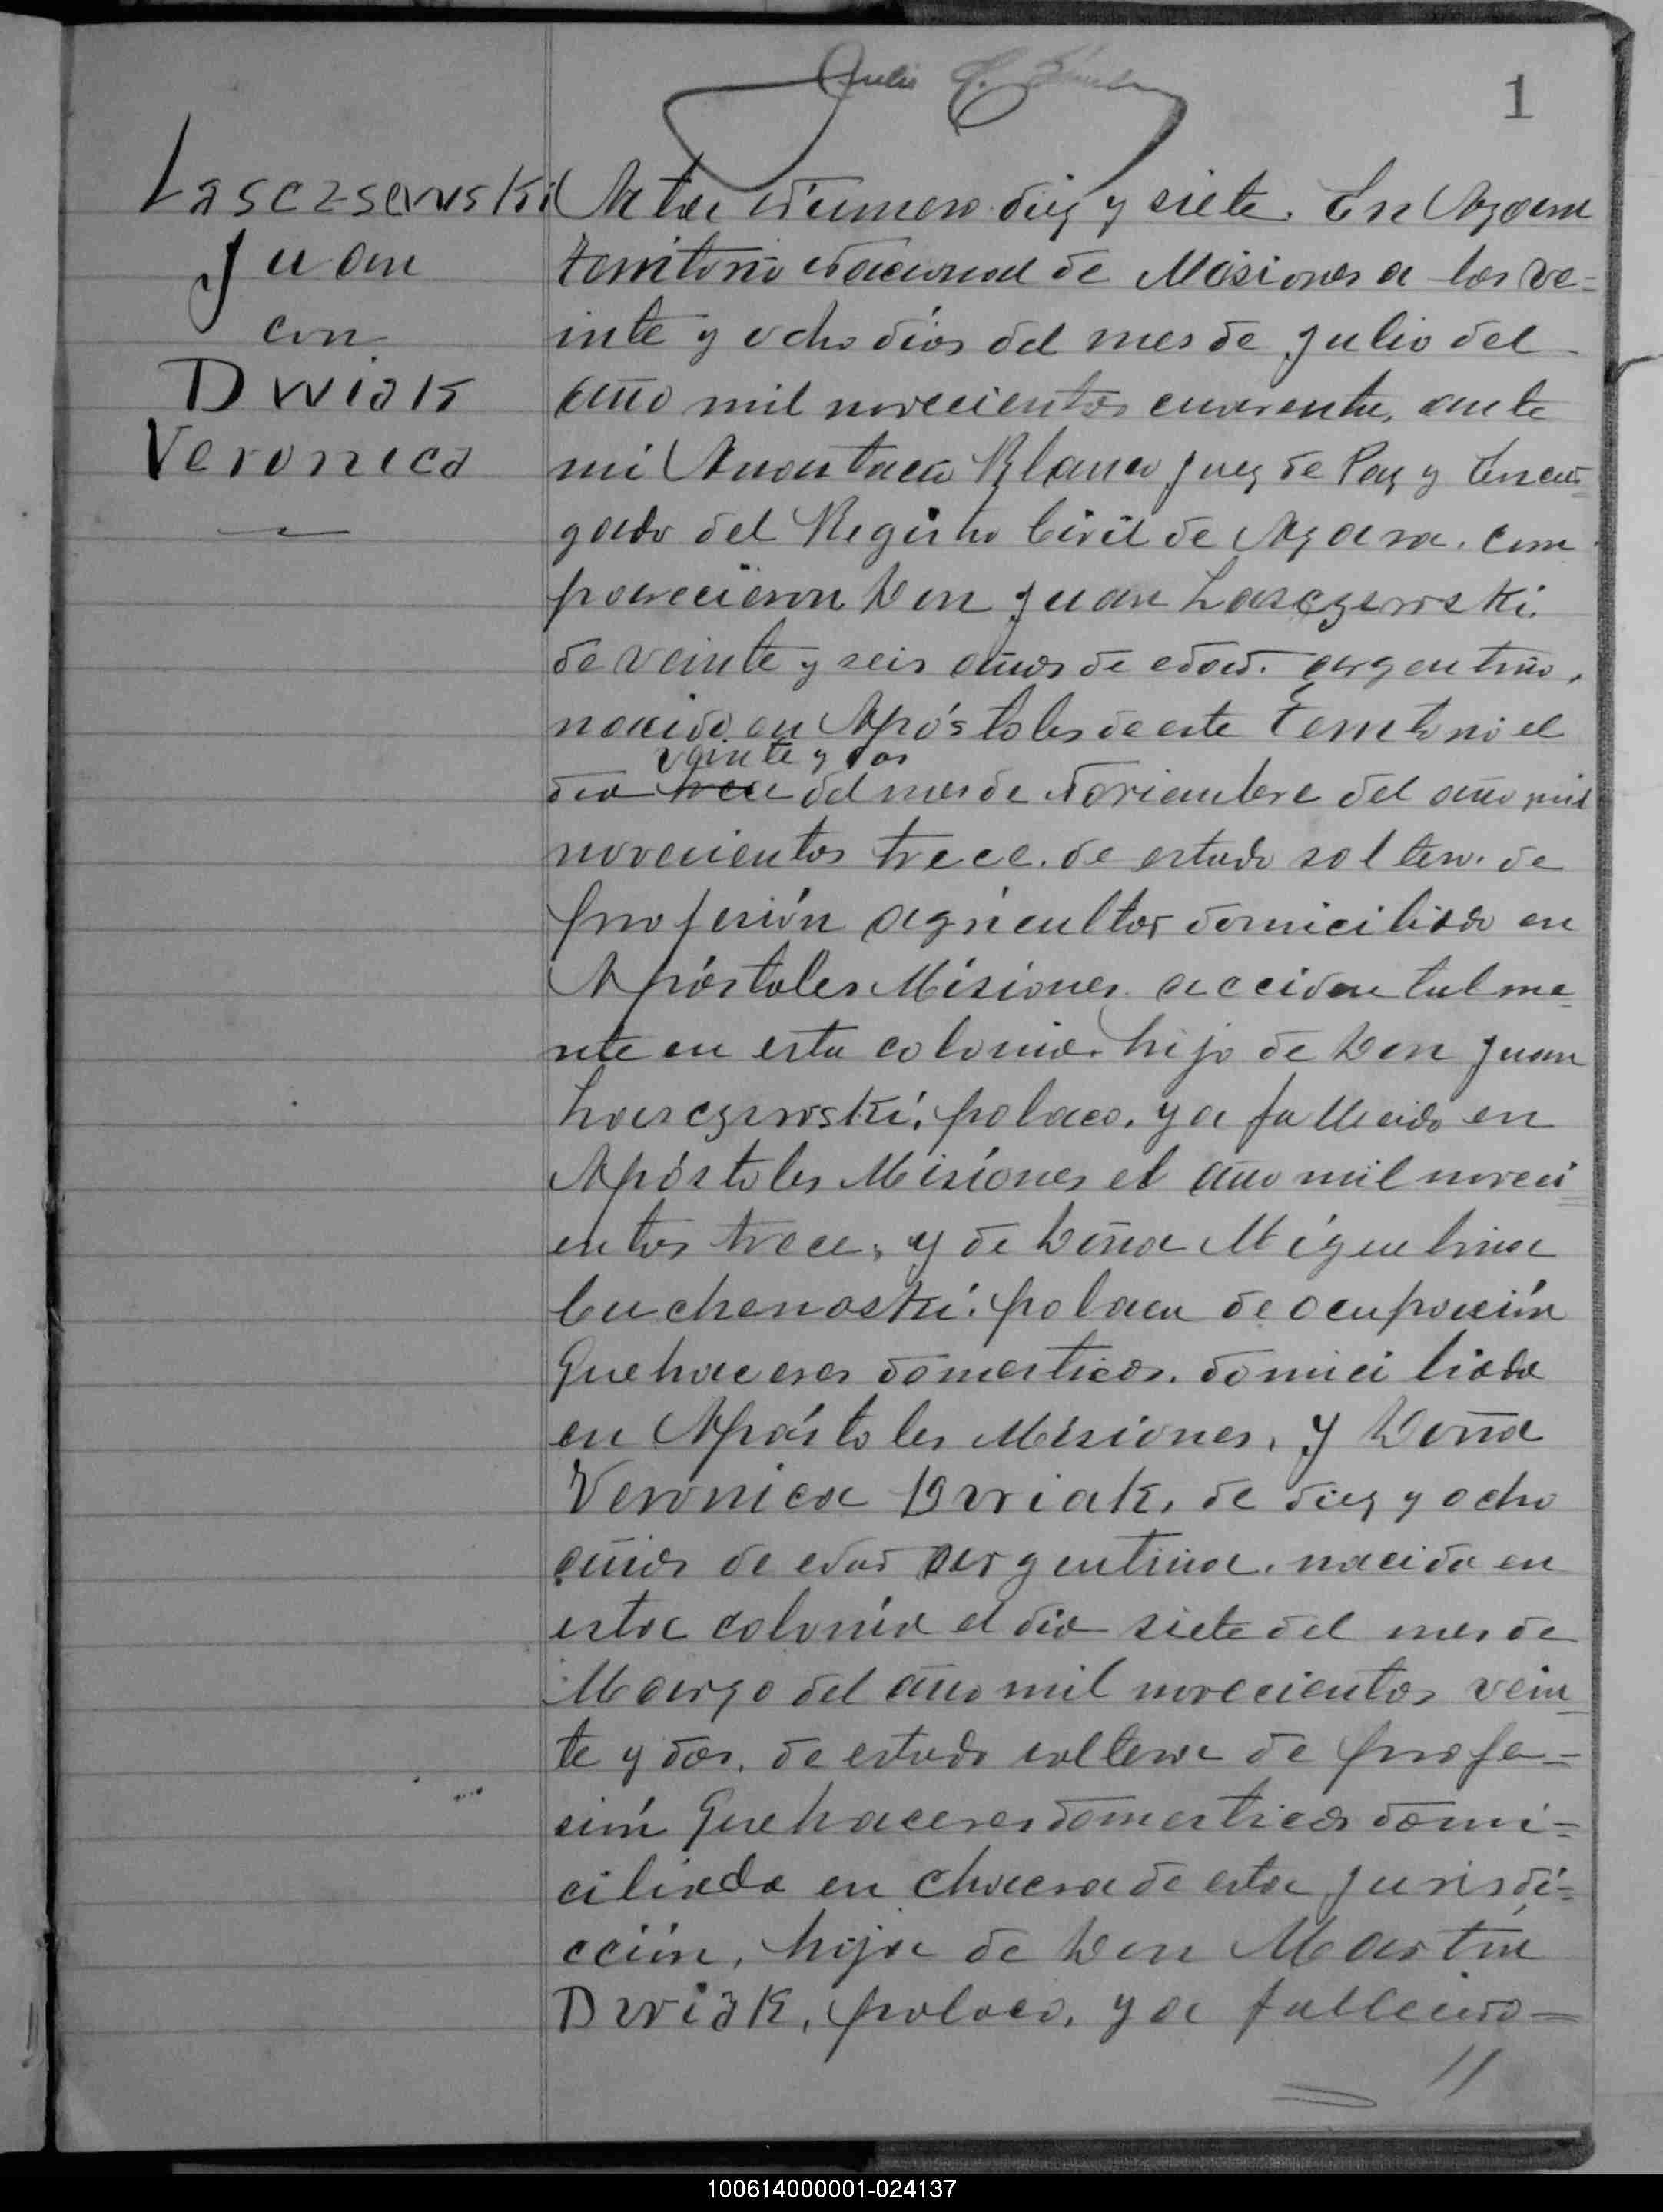 1
Lasczsewski
Juan
con
Dwiak
Veronica
Acta Número diez y siete. En Azara
territorio Nacional de Misiones a los ve=
inte y ocho días del mes de Julio del
año mil novecientos cuarenta, ante
mi Blanco Juez de Paz y Encar=
gado del Registro Civil de Azara. com
parecieron Don Juan Lasczewski.
de veinte y seis años de edad. argentino,
nacido en Apóstoles de este territorio el
veinte y dos
dia trece del mes de Noviembre del año mil
novecientos trece. de estado soltero. de
profesión agricultor domiciliado en
Apóstoles Misiones. accidentalme=
nte en esta colonia. hijo de Don Juan
Lasczewski, polaco. ya fallecido en
Apóstoles Misiones el año mil noveci=
entos trece, y de Doña Miguelina
Cuchenoski. polaca de ocupación
Quehaceres domesticos. domiciliada
en Apóstoles Misiones, y Doña
Veronica Dwiak, de diez y ocho
años de edad argentina. nacida en
esta colonia el día siete del mes de
Marzo del año mil novecientos vein=
te y dos. de estado soltera de profe=
sión Quehaceres domesticos domi=
ciliada en chacra de esta Jurisdi=
cción, hija de Don Martín
Dwiak, polaco, ya fallecido=
//
100614000001-024137